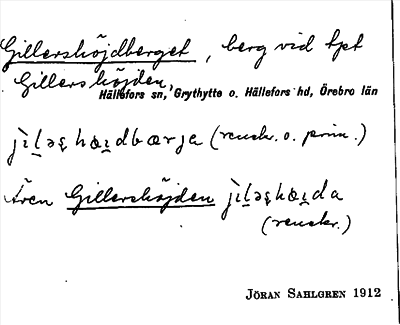 Gillershöjdberget, berg vid tpt
Gillershöjden,
Hällefors sn, Grythytte o. Hällefors hd, Örebro län
(renskr. o. prim.)
Även Gillershöjden
(renskr.)
JÖRAN SAHLGREN 1912